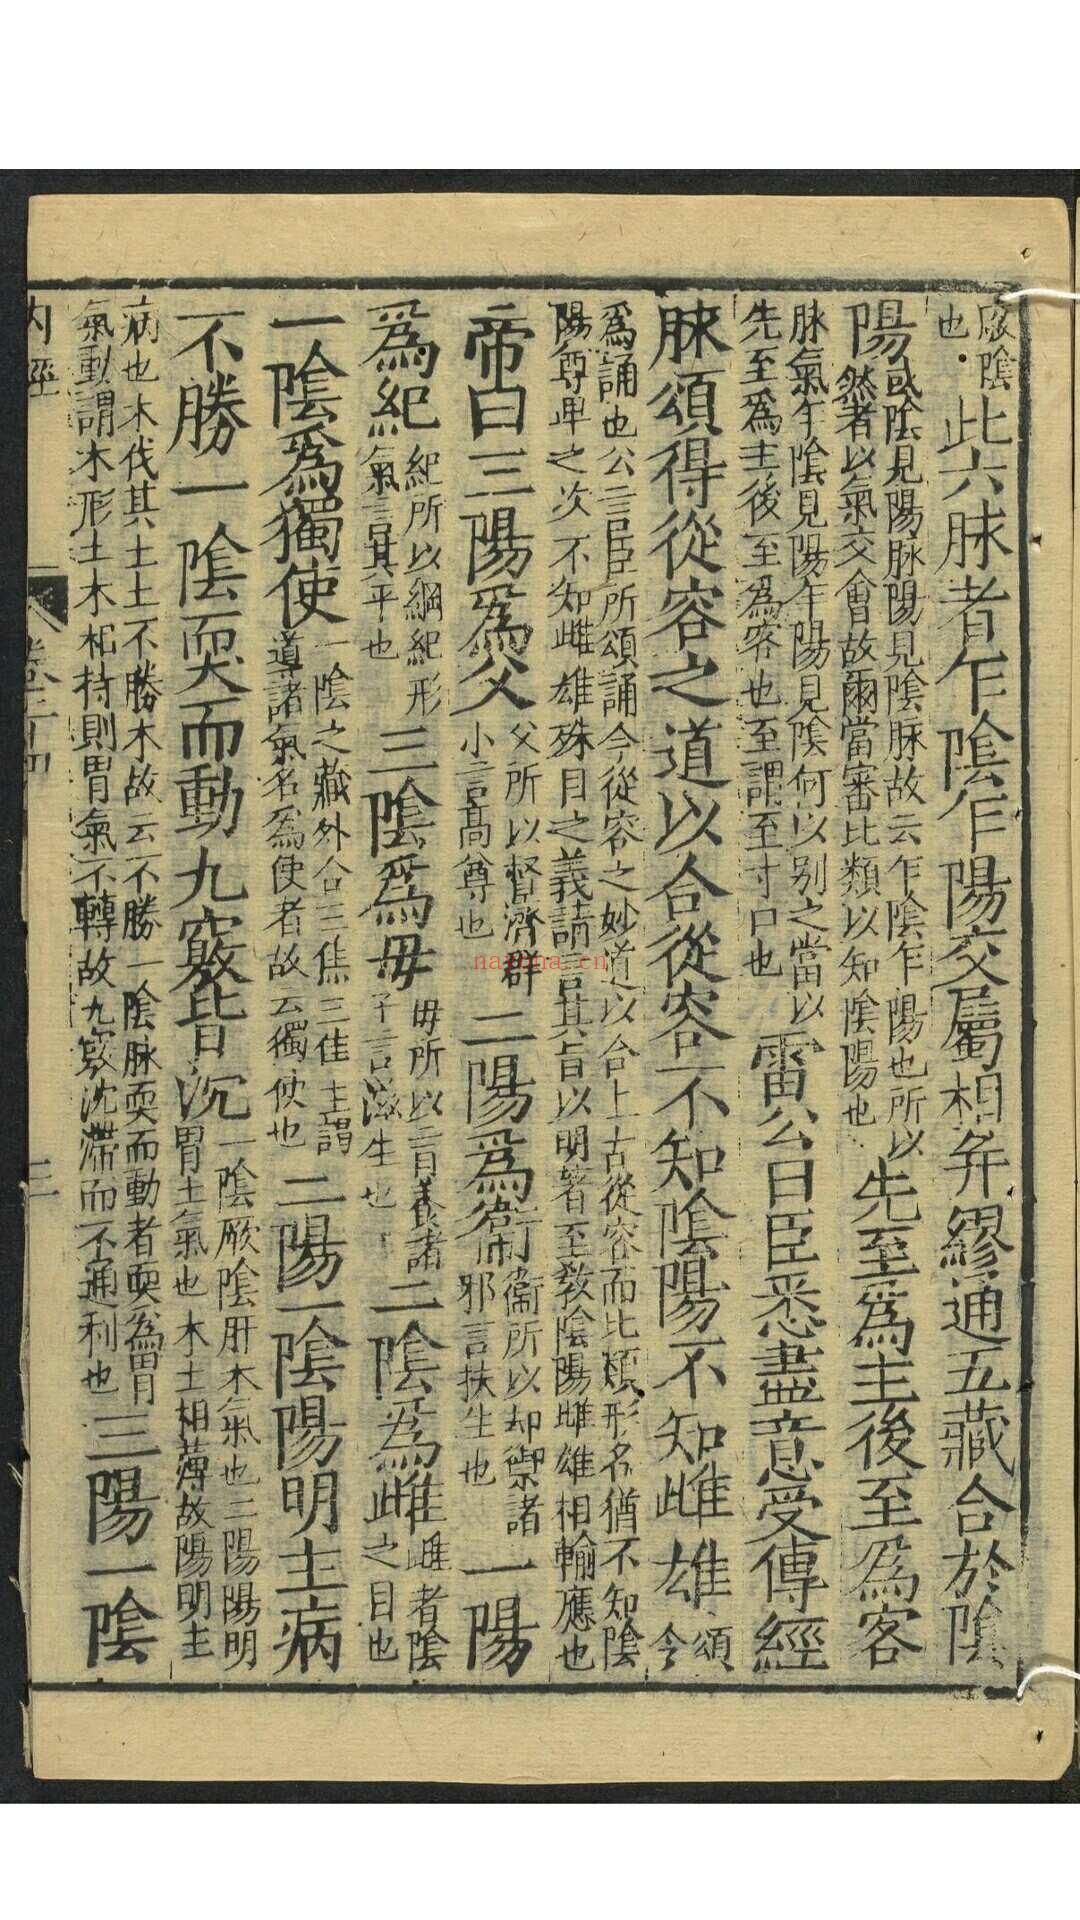 厥陰
也
此六脉者乍陰乍陽交屬相并繆通五藏合於陰
陽
或陰見陽脉陽見陰脉故云乍陰乍陽也所以
然者以氣交會故爾當審比類以知陰陽也
先至爲主後至爲客
脉氣乍陰見陽乍陽見陰何以别之當以
先至爲主後至爲客也至謂至寸口也
雷公曰臣悉盡意受傳經
脉頌得從容之道以合從容不知陰陽不知雌雄
頌
今
爲誦也公言臣所頌誦今從容之妙道以合上古從容而比類形名猶不知陰
陽尊卑之次不知雌雄殊目之義請言其旨以明著至教陰陽雌雄相輸應也
帝曰三陽爲父
父所以督濟群
小言高尊也
二陽爲衞
衞所以却禦諸
邪言扶生也
一陽
爲紀
紀所以綱紀形
氣言其平也
三陰爲毋
毋所以育養諸
子言滋生也
二陰爲雌
雌者陰
之目也
一陰爲獨使
一陰之藏外合三焦三焦主謂
導諸氣名爲使者故云獨使也
二陽一陰陽明主病
不勝一陰耎而動九竅皆沉
一陰厥陰肝木氣也二陽陽明
胃土氣也木土相薄故陽明主
病也木伐其土土不勝木故云不勝一陰脉耎而動者耎爲胃
氣動謂木形土木相持則胃氣不轉故九竅沈滯而不通利也
三陽一陰
内經
卷二十四
三
nayona.cn